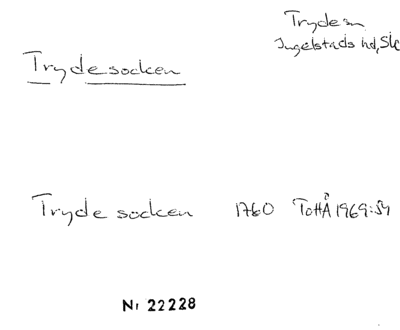 Tryde sn
Ingelstads hd, Sk
Trydesocken
Tryde socken 1760 ToHÅ 1969:54
Nr 22228